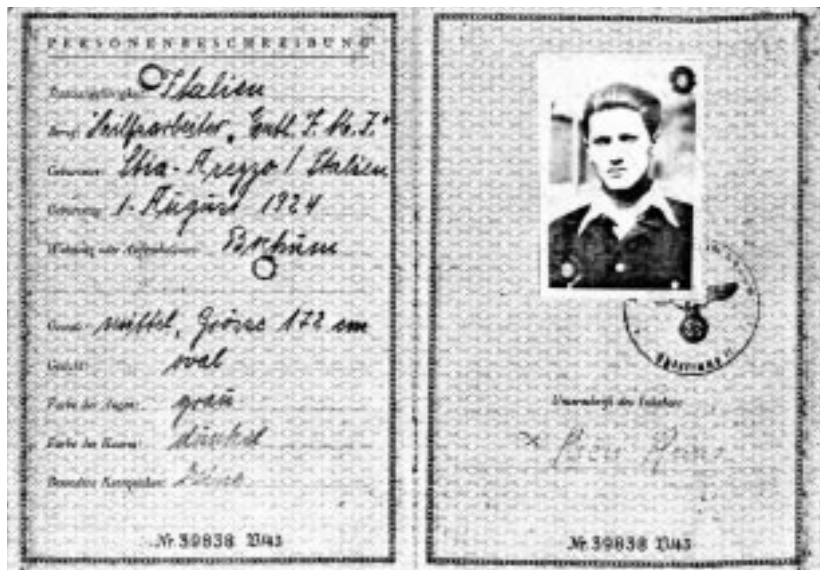 PERSONENBESCHREIBUNG
Staatsangehörigkeit: Italien
Beruf: Hilfsarbeiter, "Entl. I. M. I."
Geburtsort: Stia-Arezzo / Italien
Geburtstag: 1. August 1924
Wohnung oder Aufenthaltsort: Bochum
Gestalt: mittel, Grösse 172 cm
Gesicht: oval
Farbe der Augen: grau
Farbe der Haare: dunkel
Besondere Kennzeichen: Keine
Nr. 39838 V/43
Unterschrift des Inhabers
Nr. 39838 V/43